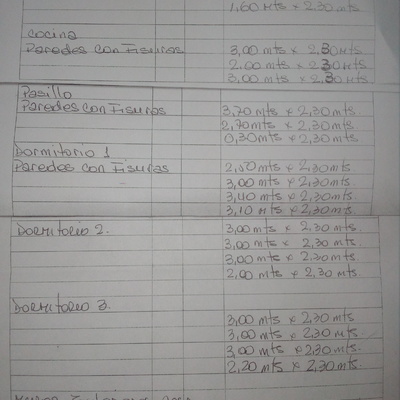 1,60 Mts x 2,30 mts
Cocina
Paredes con Fisuras 3,00 mts x 2,30 Mts
2,00 mts x 2,30 Mts
3,00 mts x 2,30 Mts
Pasillo
Paredes con Fisuras 3,70 mts x 2,30 mts
2,70 mts x 2,30 mts
0,30 mts x 2,30 mts
Dormitorio 1
Paredes con Fisuras 2,50 mts x 2,30 mts.
3,00 mts x 2,30 mts
3,40 mts x 2,30 mts.
3,10 Mts x 2,30 mts.
Dormitorio 2. 3,00 mts x 2,30 mts.
3,00 mts x 2,30 mts.
3,00 mts x 2,30 mts
2,00 mts x 2,30 mts.
Dormitorio 3
3,00 mts x 2,30 mts.
3,00 mts x 2,30 mts.
3,00 mts x 2,30 mts.
2,20 mts x 2,30 mts.